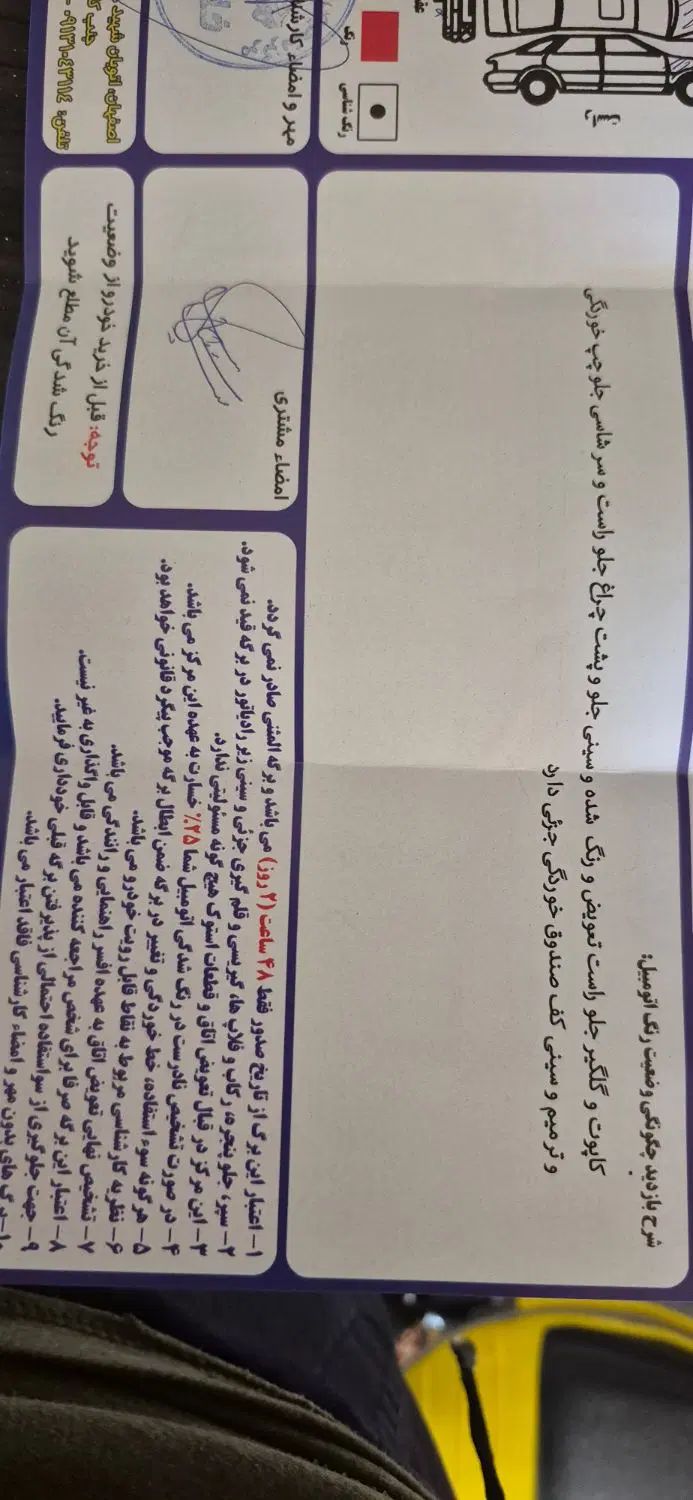 رنگ
رنگ شناسی
شرح بازدید چگونگی وضعیت رنگ اتومبیل:
کاپوت و گلگیر جلو راست تعویض و رنگ شده و سینی جلو و پشت چراغ جلو راست و سر شاسی جلو چپ خوردگی
و ترمیم و سینی کف صندوق خوردگی جزئی دارد
مهر و امضاء
امضاء مشتری
توجه: قبل از خرید خودرو از وضعیت
رنگ شدگی آن مطلع شوید
۱- اعتبار این برگ از تاریخ صدور فقط ۴۸ ساعت (۲ روز) می باشد و برگه المثنی صادر نمی گردد.
۲- سپر، جلو پنجره، رکاب و فلاپ ها، گیریسی و قلم گیری جزئی و سینی زیر رادیاتور در برگه قید نمی شود.
۳- این مرکز در قبال تعویض اتاق و قطعات استوک هیچ گونه مسئولیتی ندارد.
۴- در صورت تشخیص نادرست در رنگ شدگی اتومبیل شما ۲۵٪ خسارت به عهده این مرکز می باشد.
۵- هر گونه سوء استفاده، خط خوردگی و تغییر در برگه ضمن ابطال برگه موجب پیگرد قانونی خواهد بود.
۶- نظریه کارشناسی مربوط به نقاط قابل رویت خودرو می باشد.
۷- تشخیص نهایی تعویض اتاق به عهده افسر راهنمایی و رانندگی می باشد.
۸- اعتبار این برگه صرفا برای شخص مراجعه کننده می باشد و قابل واگذاری به غیر نیست.
۹- جهت جلوگیری از سواستفاده احتمالی از پذیرفتن برگه قبلی خودداری فرمایید.
۱۰- برگ های بدون مهر و امضاء کارشناسی فاقد اعتبار می باشد.